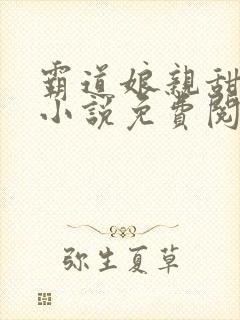 霸道娘亲甜
小説免費閱
弥生夏草